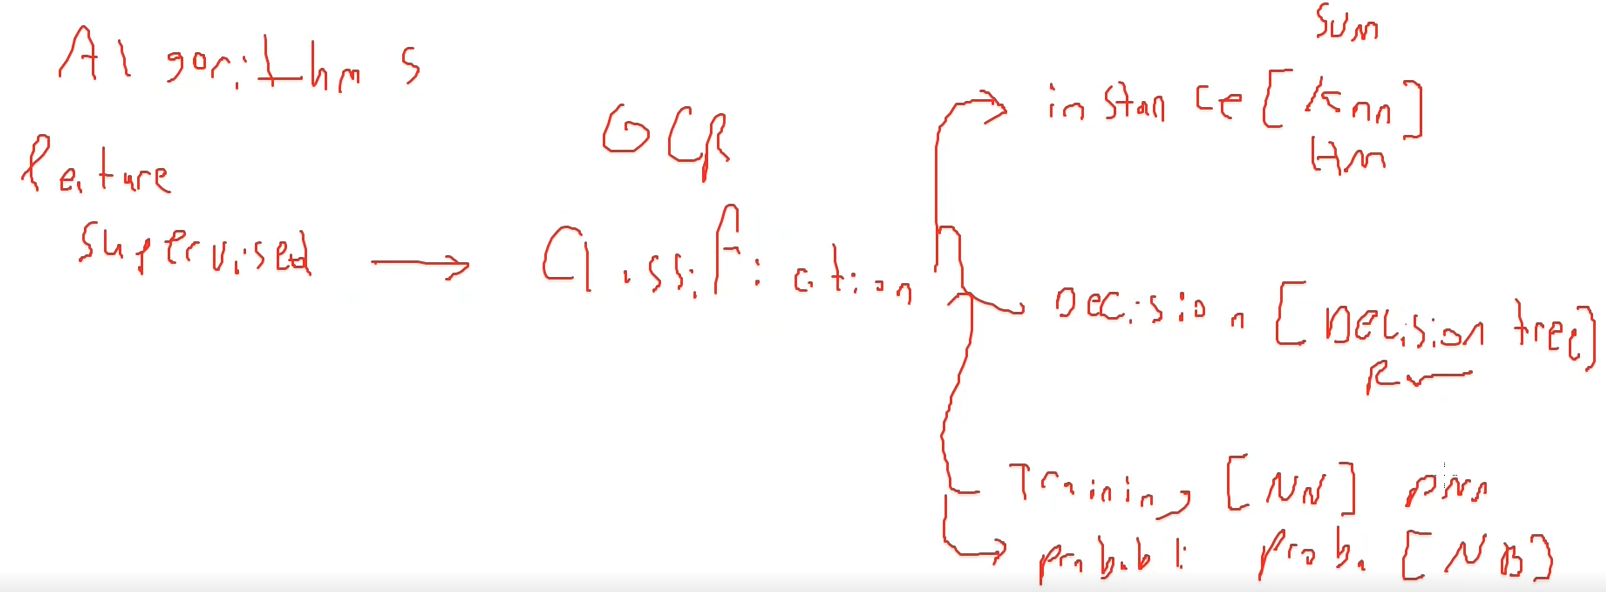 Algorithms
feature
Supervised → Classification
OCR
SUM
instance [Knn]
HM
Decision [Decision tree]
Training [NN] PNN
probabli proba [NB]